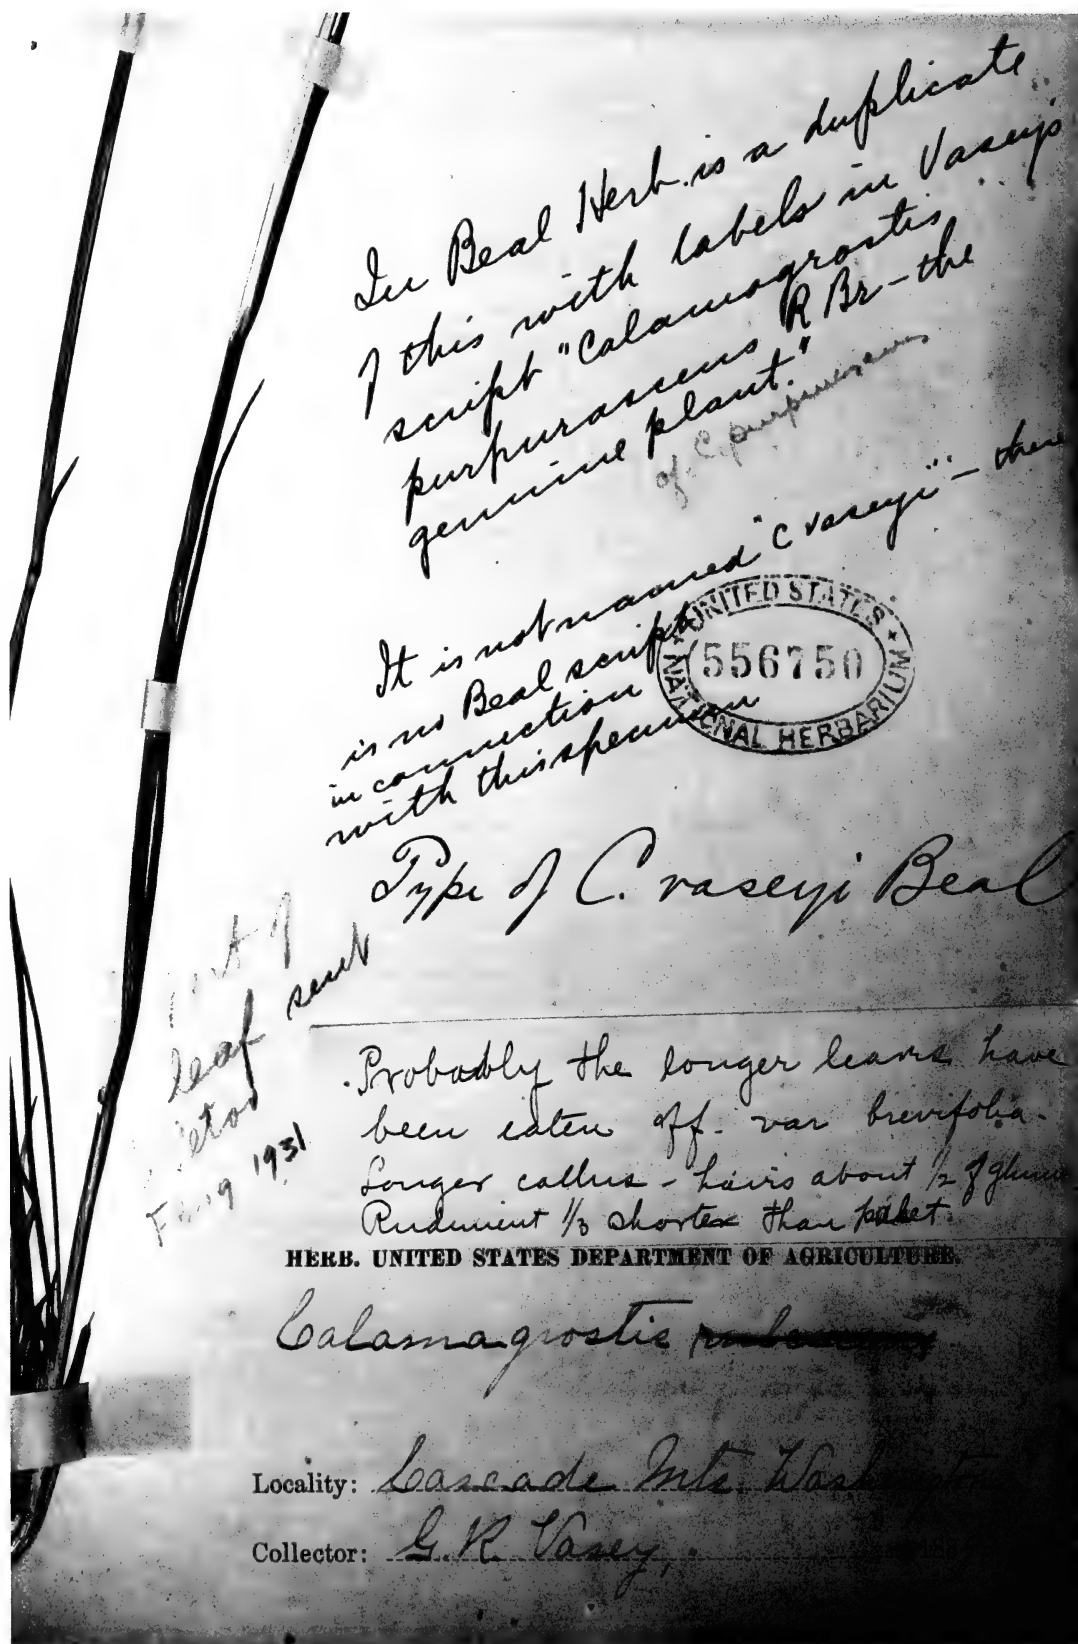 In Beal Herb. is a duplicate
of this with labels in Vasey's
script "Calamagrostis
purpurascens R Br - the
genuine plant."
of C. purpurascens
It is not named "C vaseyi" - there
is no Beal script
in connection
with this specimen
UNITED STATES
556750
NATIONAL HERBARIUM
Type of C. vaseyi Beal
of
leaf sent
1931
Probably the longer leaves have
been eaten off. var brevifolia.
Longer callus - hairs about 1/2 of glume
Rudiment 1/3 shorter than palet.
HERB. UNITED STATES DEPARTMENT OF AGRICULTURE.
Calamagrostis
Locality: Cascade Mts. Washington
Collector: G. R. Vasey,